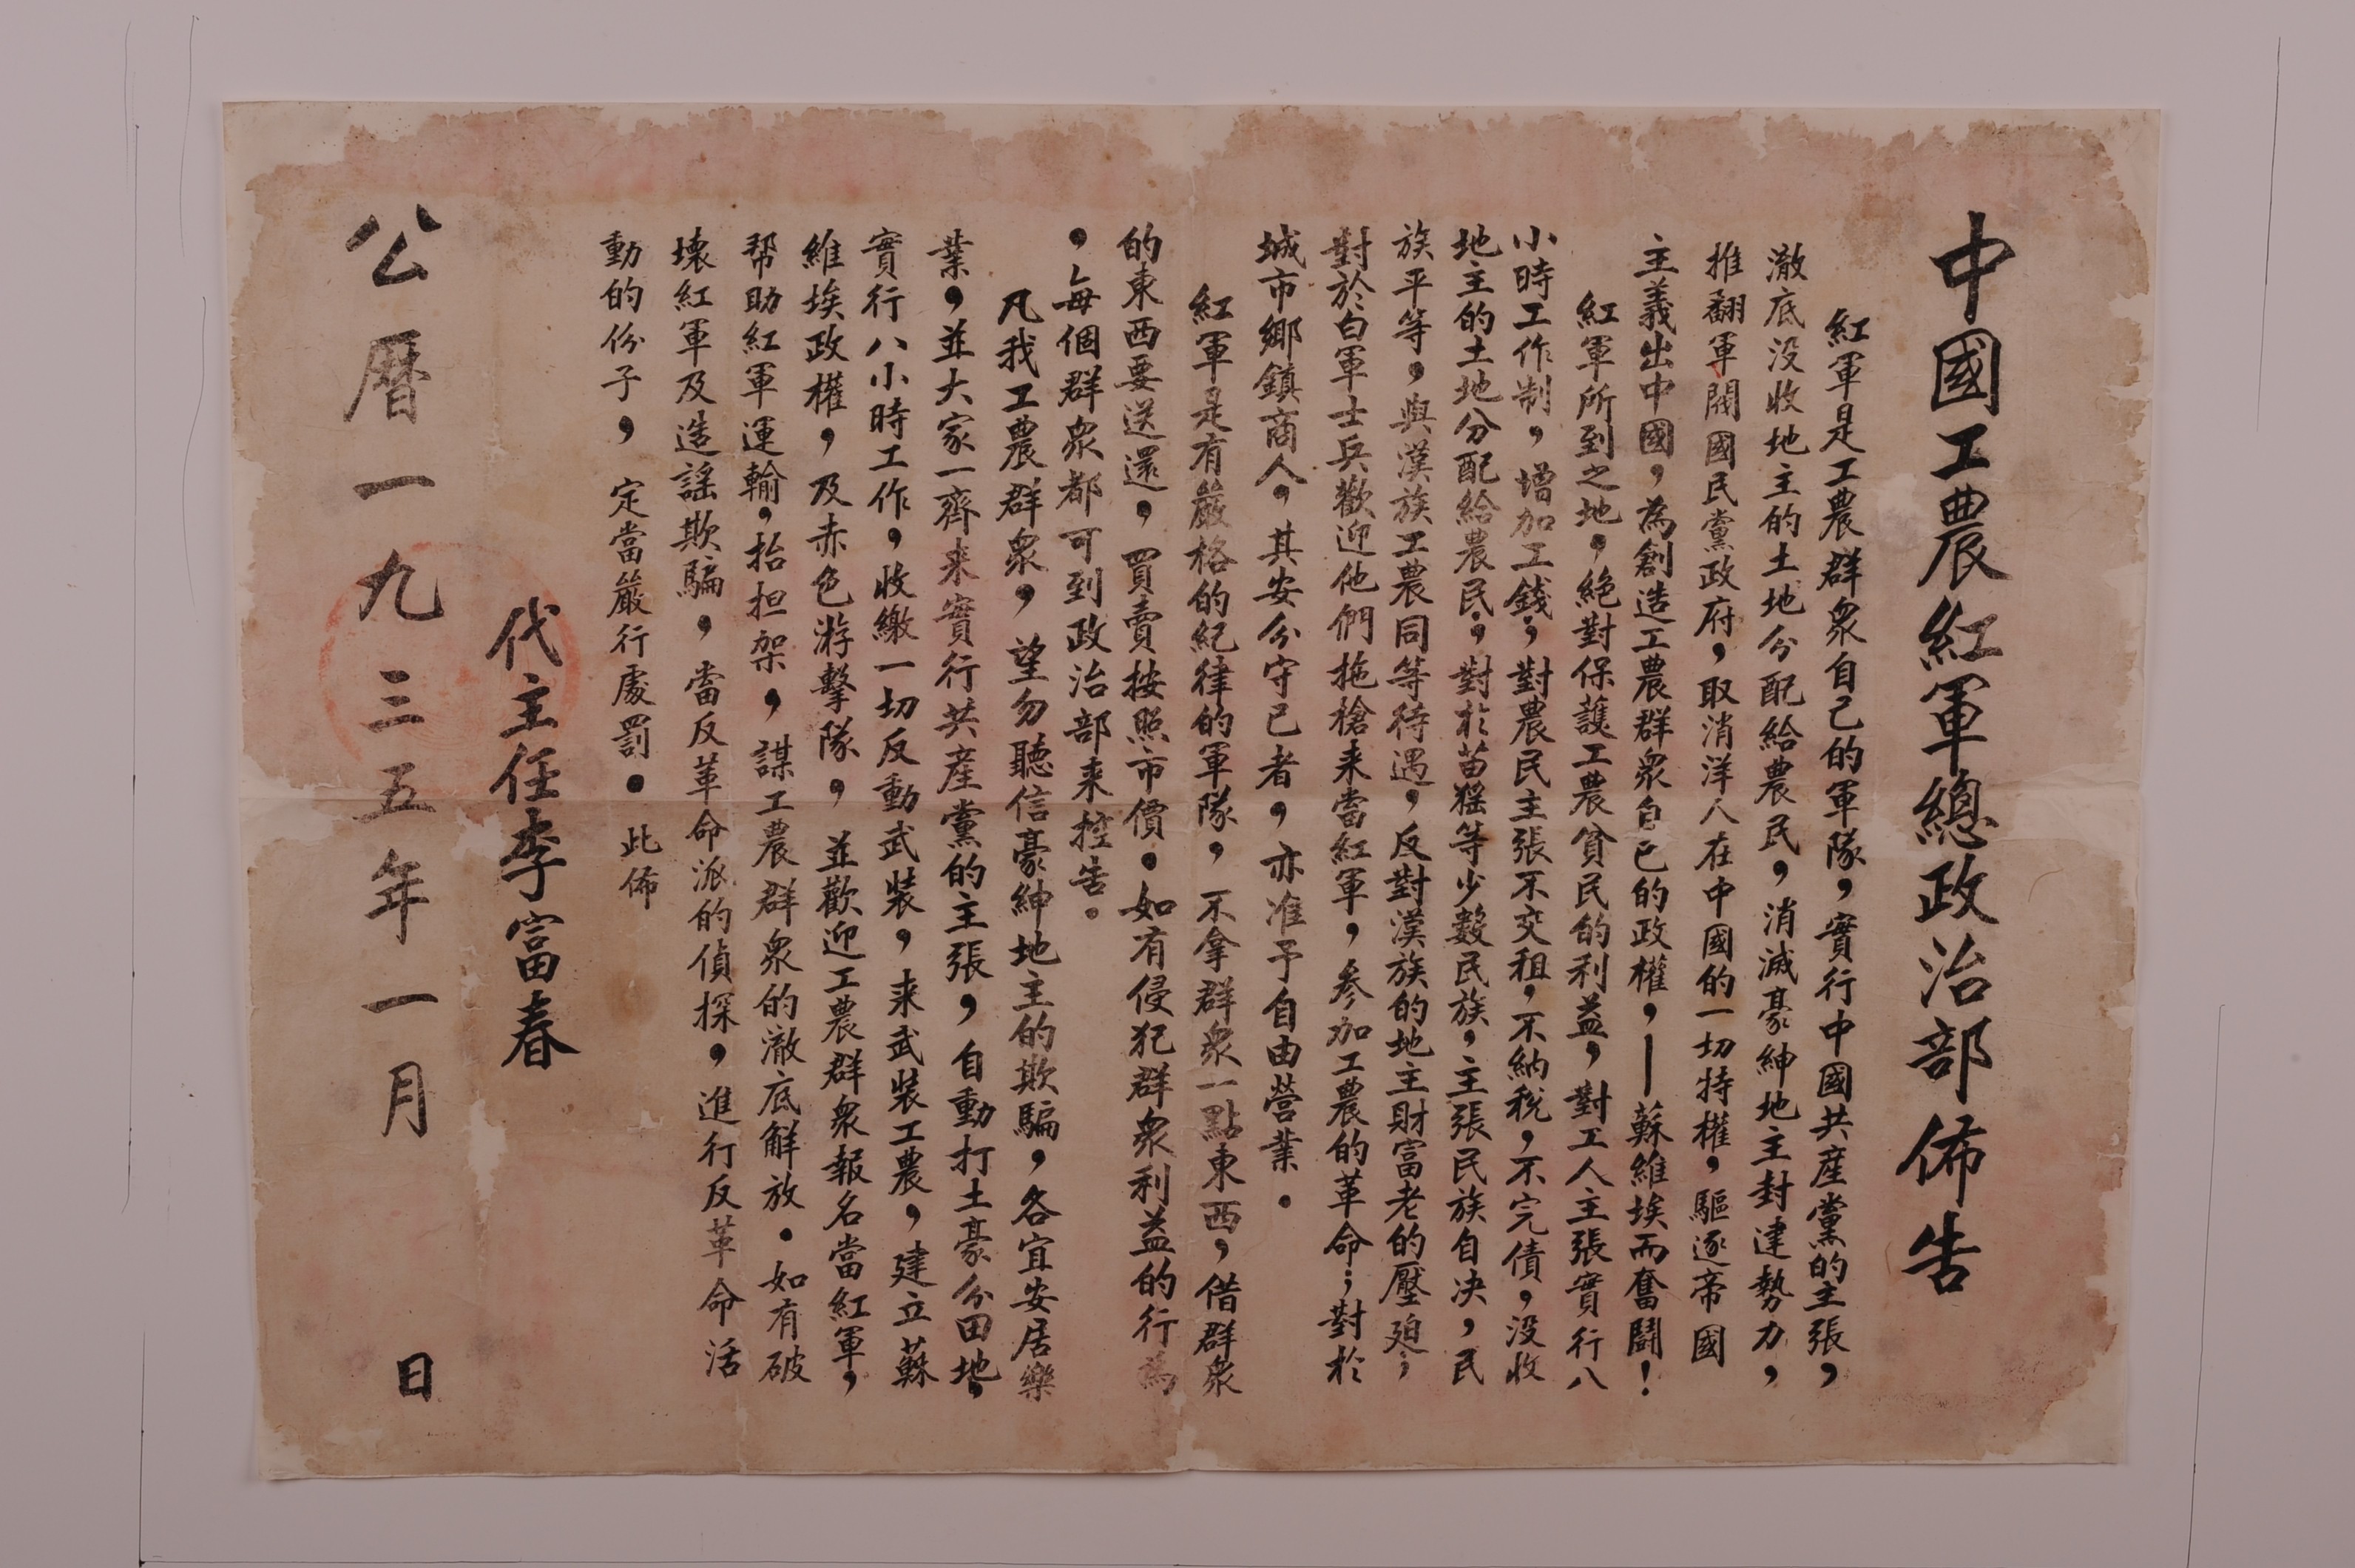 中國工農紅軍總政治部佈告
紅軍是工農群衆自己的軍隊，實行中國共產黨的主張，
澈底没收地主的土地分配給農民，消滅豪紳地主封建勢力，
推翻軍閥國民黨政府，取消洋人在中國的一切特權，驅逐帝國
主義出中國，為創造工農群衆自己的政權，—蘇維埃而奮鬪！
紅軍所到之地，絕對保護工農貧民的利益，對工人主張實行八
小時工作制，增加工錢；對農民主張不交租，不納稅，不完債，没收
地主的土地分配給農民；對於苗猺等少數民族，主張民族自决，民
族平等，與漢族工農同等待遇，反對漢族的地主財富老的壓廹；
對於白軍士兵歡迎他們拖槍来當紅軍，參加工農的革命；對於
城市鄉鎮商人，其安分守己者，亦准予自由營業。
紅軍是有嚴格的紀律的軍隊，不拿群衆一點東西，借群衆
的東西要送還，買賣按照市價。如有侵犯群衆利益的行為
，每個群衆都可到政治部来控告。
凡我工農群衆，望勿聽信豪紳地主的欺騙，各宜安居樂
業，並大家一齊来實行共產黨的主張，自動打土豪分田地，
實行八小時工作，收繳一切反動武裝，来武裝工農，建立蘇
維埃政權，及赤色游擊隊，並歡迎工農群衆報名當紅軍，
帮助紅軍運輸，抬担架，謀工農群衆的澈底解放。如有破
壊紅軍及造謠欺騙，當反革命派的偵探，進行反革命活
動的份子，定當嚴行處罰。此佈
代主任李富春
公曆一九三五年一月 日